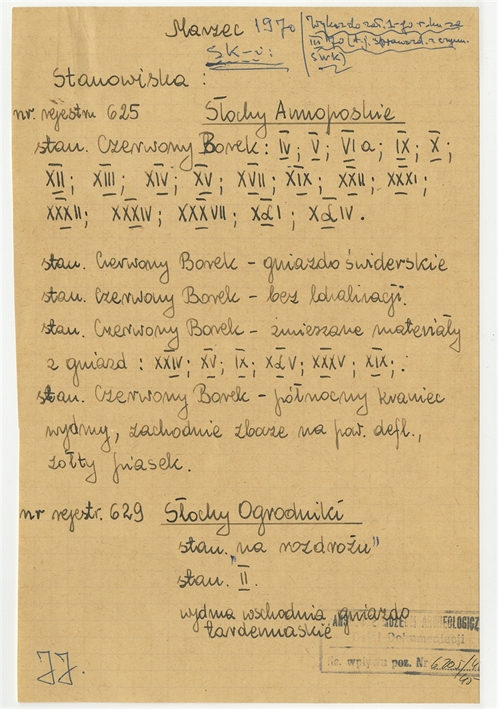 Marzec 1970
SK-V:
Wykaz do zał. 1-go r-ku za
III
SWK)
Stanowiska :
nr. rejestru 625 Słochy Annopolskie
stan. Czerwony Borek: IV; V; VI a; IX; X;
XII; XIII; XIV; XV; XVII; XIX; XXII; XXXI;
XXXII; XXXIV; XXXVII; XLI; XLIV.
stan. Czerwony Borek – gniazdo świderskie
stan. Czerwony Borek – bez lokalizacji.
stan. Czerwony Borek – zmieszane materiały
z gniazd : XXIV; XV; IX; XLV; XXXV; XIX;.
stan. Czerwony Borek – północny kraniec
wydmy, zachodnie zbocze na pow. defl.,
żółty piasek.
nr rejestr. 629 Słochy Ogrodniki
stan. "na rozdrożu"
stan. II.
wydma wschodnia gniazdo
tardenuaskie
ARCHEOLOGICZ
Dokumentacji
Nr. wpływu poz. Nr
JJ.